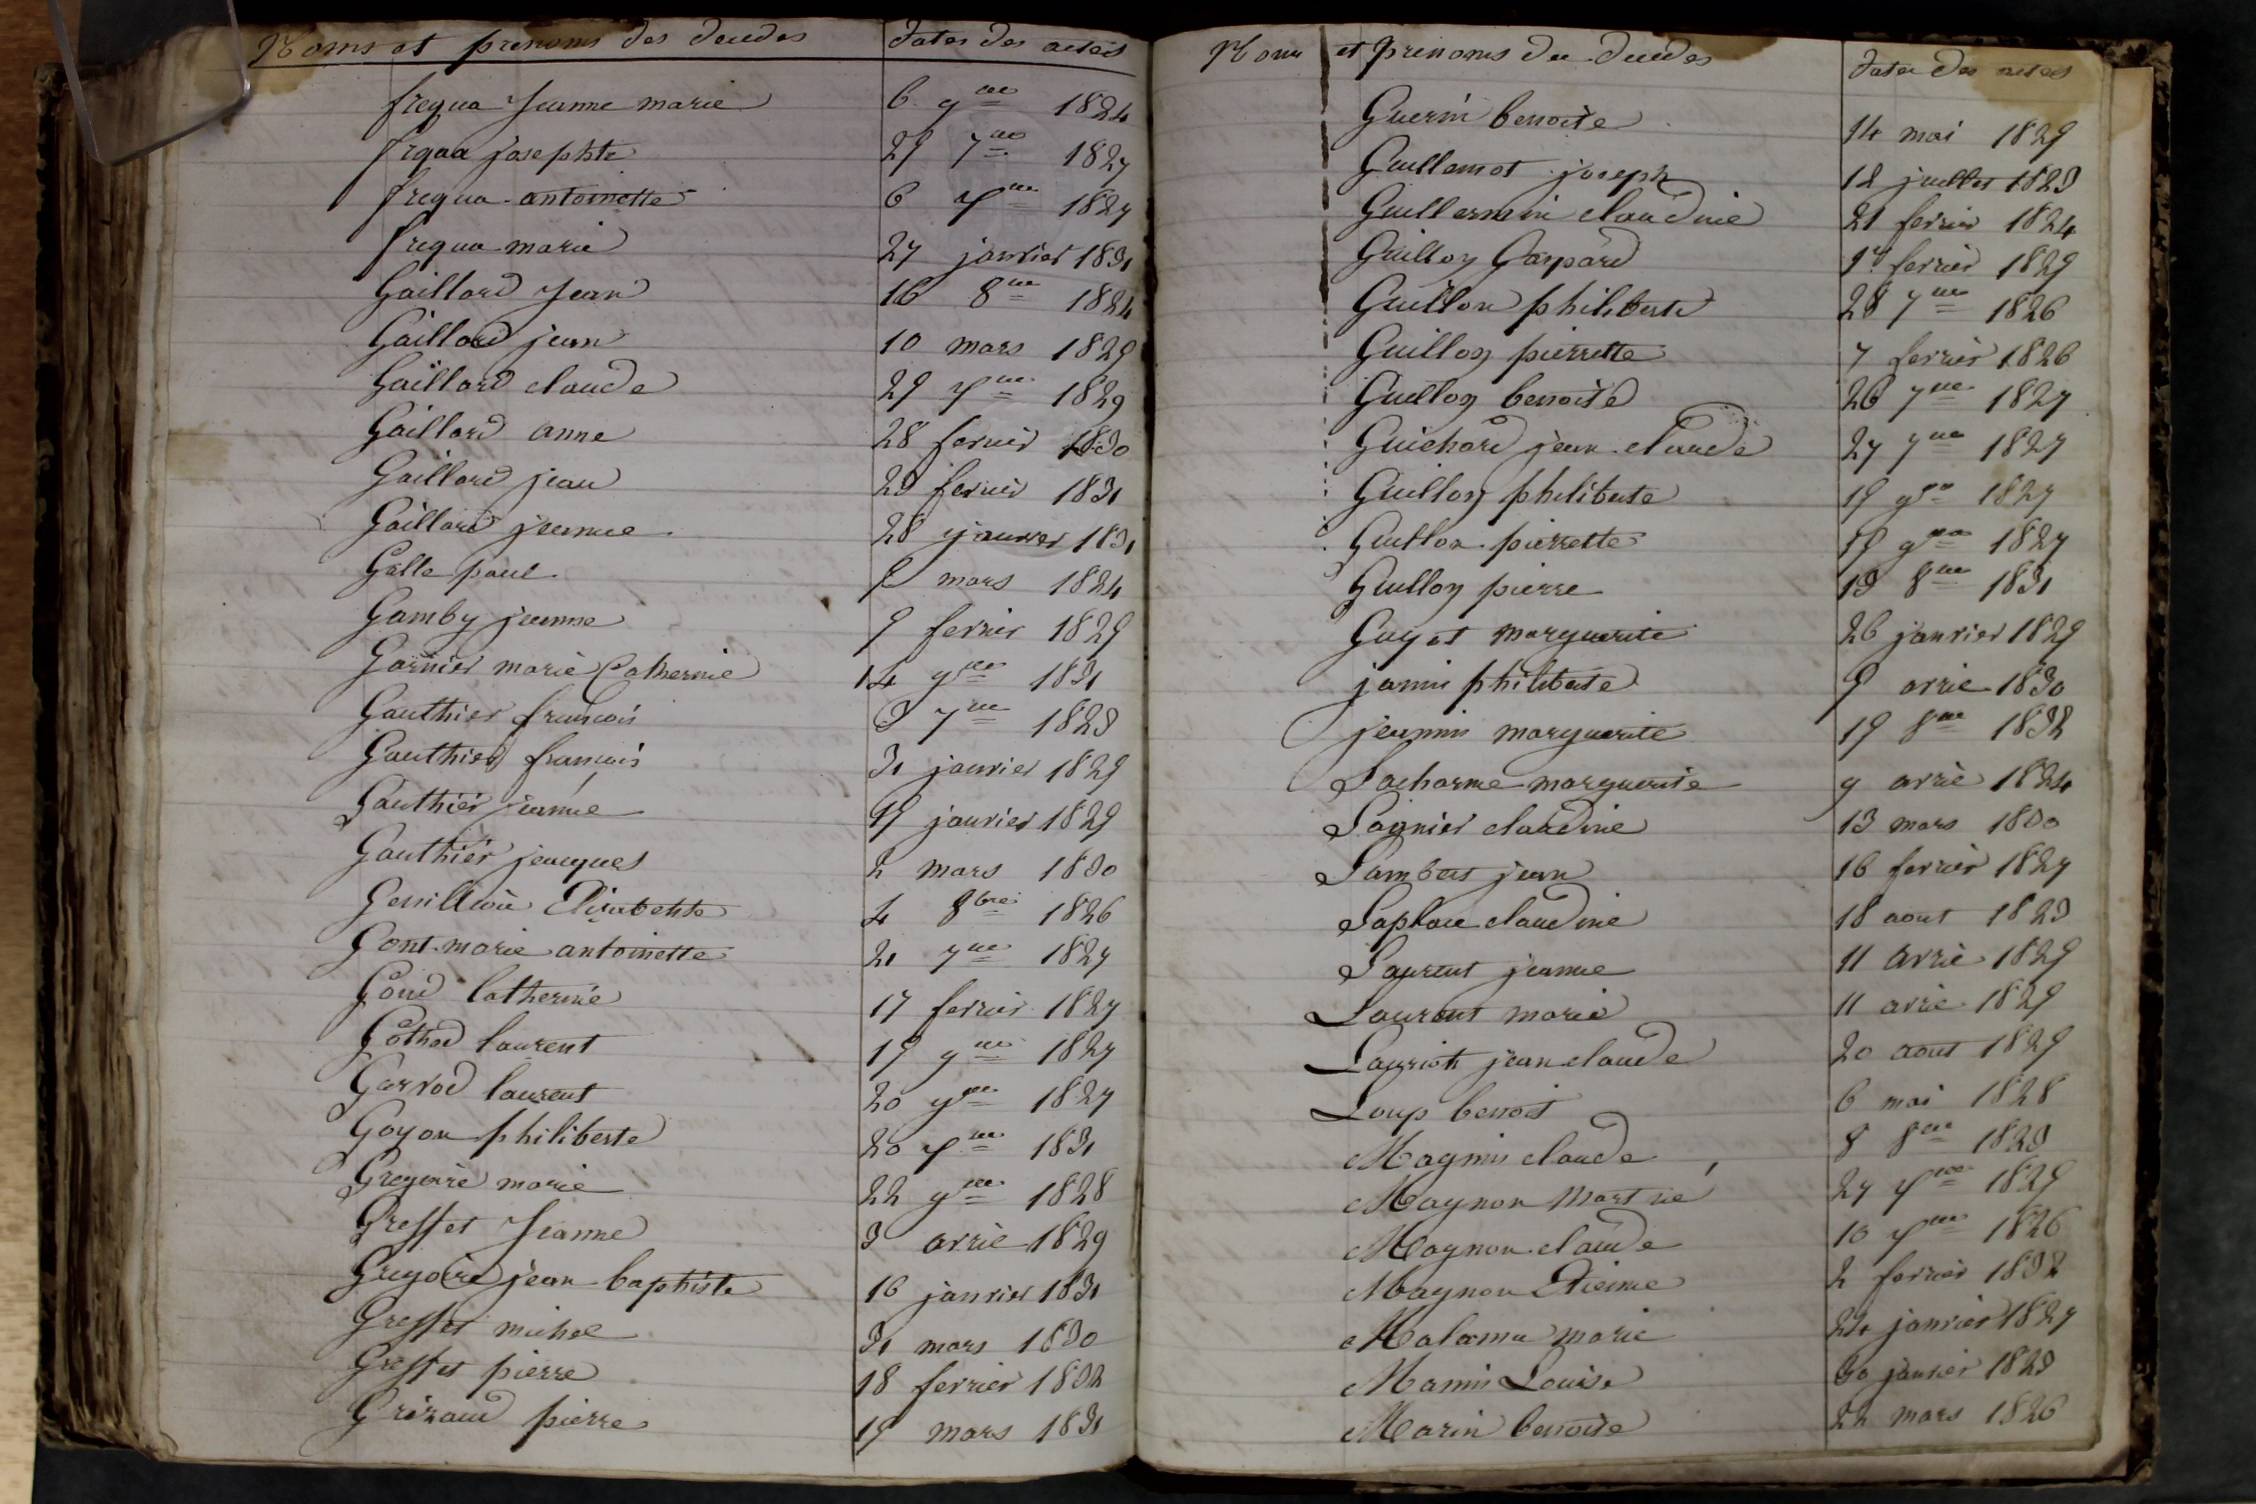 Noms et prenoms des decedes dates des actes
frequa Jeanne marie 6 9bre 1824
frqaa josephte 29 7bre 1827
frequa antoinette 6 7bre 1827
frequa marie 27 janvier 1831
Gaillard Jean 16 8bre 1824
Gaillard jean 10 mars 1829
Gaillard claude 29 7bre 1829
Gaillard anne 28 fevrier 1830
Gaillard jean 23 fevrier 1831
Gaillard jeanne 28 janvier 1831
Galle paul mars 1824
Gamby jeanne 9 fevrier 1829
Garnier marie Catherine 14 9bre 1831
Gauthier francois 3 7bre 1823
Gauthier francois 31 janvier 1829
Gauthier jeanne 19 janvier 1829
Gauthier jeacques 2 mars 1830
Elizabethte 4 8bre 1826
Gont marie antoinette 21 7bre 1827
Goud Catherine 17 fevrier 1827
Gothod laurent 19 9bre 1827
Gorrod laurent 20 9bre 1827
Goyon philiberte 20 7bre 1831
Gregoire marie 22 9bre 1828
Greffet Jeanne 3 avril 1829
Gregoire jean baptiste 16 janvier 1831
Greffet michel 31 mars 1830
Greffet pierre 18 fevrier 1832
Grizaud pierre 19 mars 1831
Noms et prenoms des decedes dates des actes
Guerin benoite 14 mai 1829
Guillemot joseph 12 juillet 1823
Guillermin claudine 21 fevrier 1824
Guillon Gaspard 1er fevrier 1829
Guillon philiberte 28 7bre 1826
Guillon pierrette 7 fevrier 1826
Guillon benoite 26 7bre 1827
Guichard jean claude 27 7bre 1827
Guillon philiberte 19 9bre 1827
Guillon pierrette 19 9bre 1827
Guillon pierre 13 8bre 1831
Guyot marguerite 26 janvier 1829
janin philiberte 9 avril 1830
jeannin marguerite 19 8bre 1832
Lacharme marguerite 9 avril 1824
Lagnier claudine 13 mars 1830
Lambert jean 16 fevrier 1827
Laplace claudine 18 aout 1823
Laurent jeanne 11 avril 1829
Laurent marie 11 avril 1829
Lauriot jean claude 20 aout 1829
Loup benoit 6 mai 1828
Magnin claude 8 8bre 1823
Magnon Martine 27 7bre 1829
Magnon claude 10 7bre 1826
Magnon Etienne 2 fevrier 1832
Malama marie 24 janvier 1827
Mamin Louise 30 janvier 1823
Marin benoite 22 mars 1826